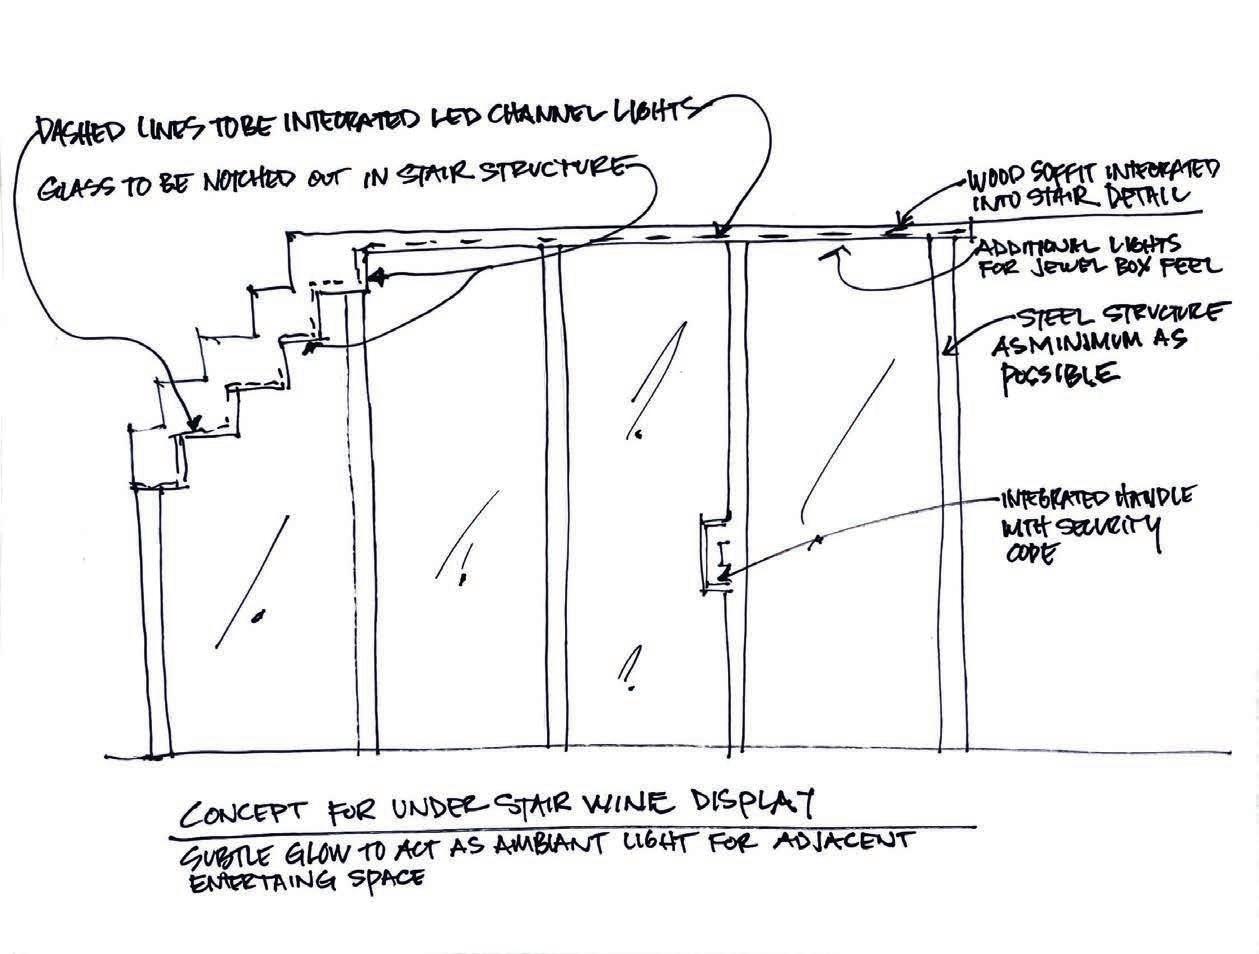 DASHED LINES TO BE INTEGRATED LED CHANNEL LIGHTS
GLASS TO BE NOTCHED OUT IN STAIR STRUCTURE
WOOD SOFFIT INTEGRATED
INTO STAIR DETAIL
ADDITIONAL LIGHTS
FOR JEWEL BOX FEEL
STEEL STRUCTURE
AS MINIMUM AS
POSSIBLE
INTEGRATED HANDLE
WITH SECURITY
CODE
CONCEPT FOR UNDER STAIR WINE DISPLAY
SUBTLE GLOW TO ACT AS AMBIANT LIGHT FOR ADJACENT
ENTERTAING SPACE